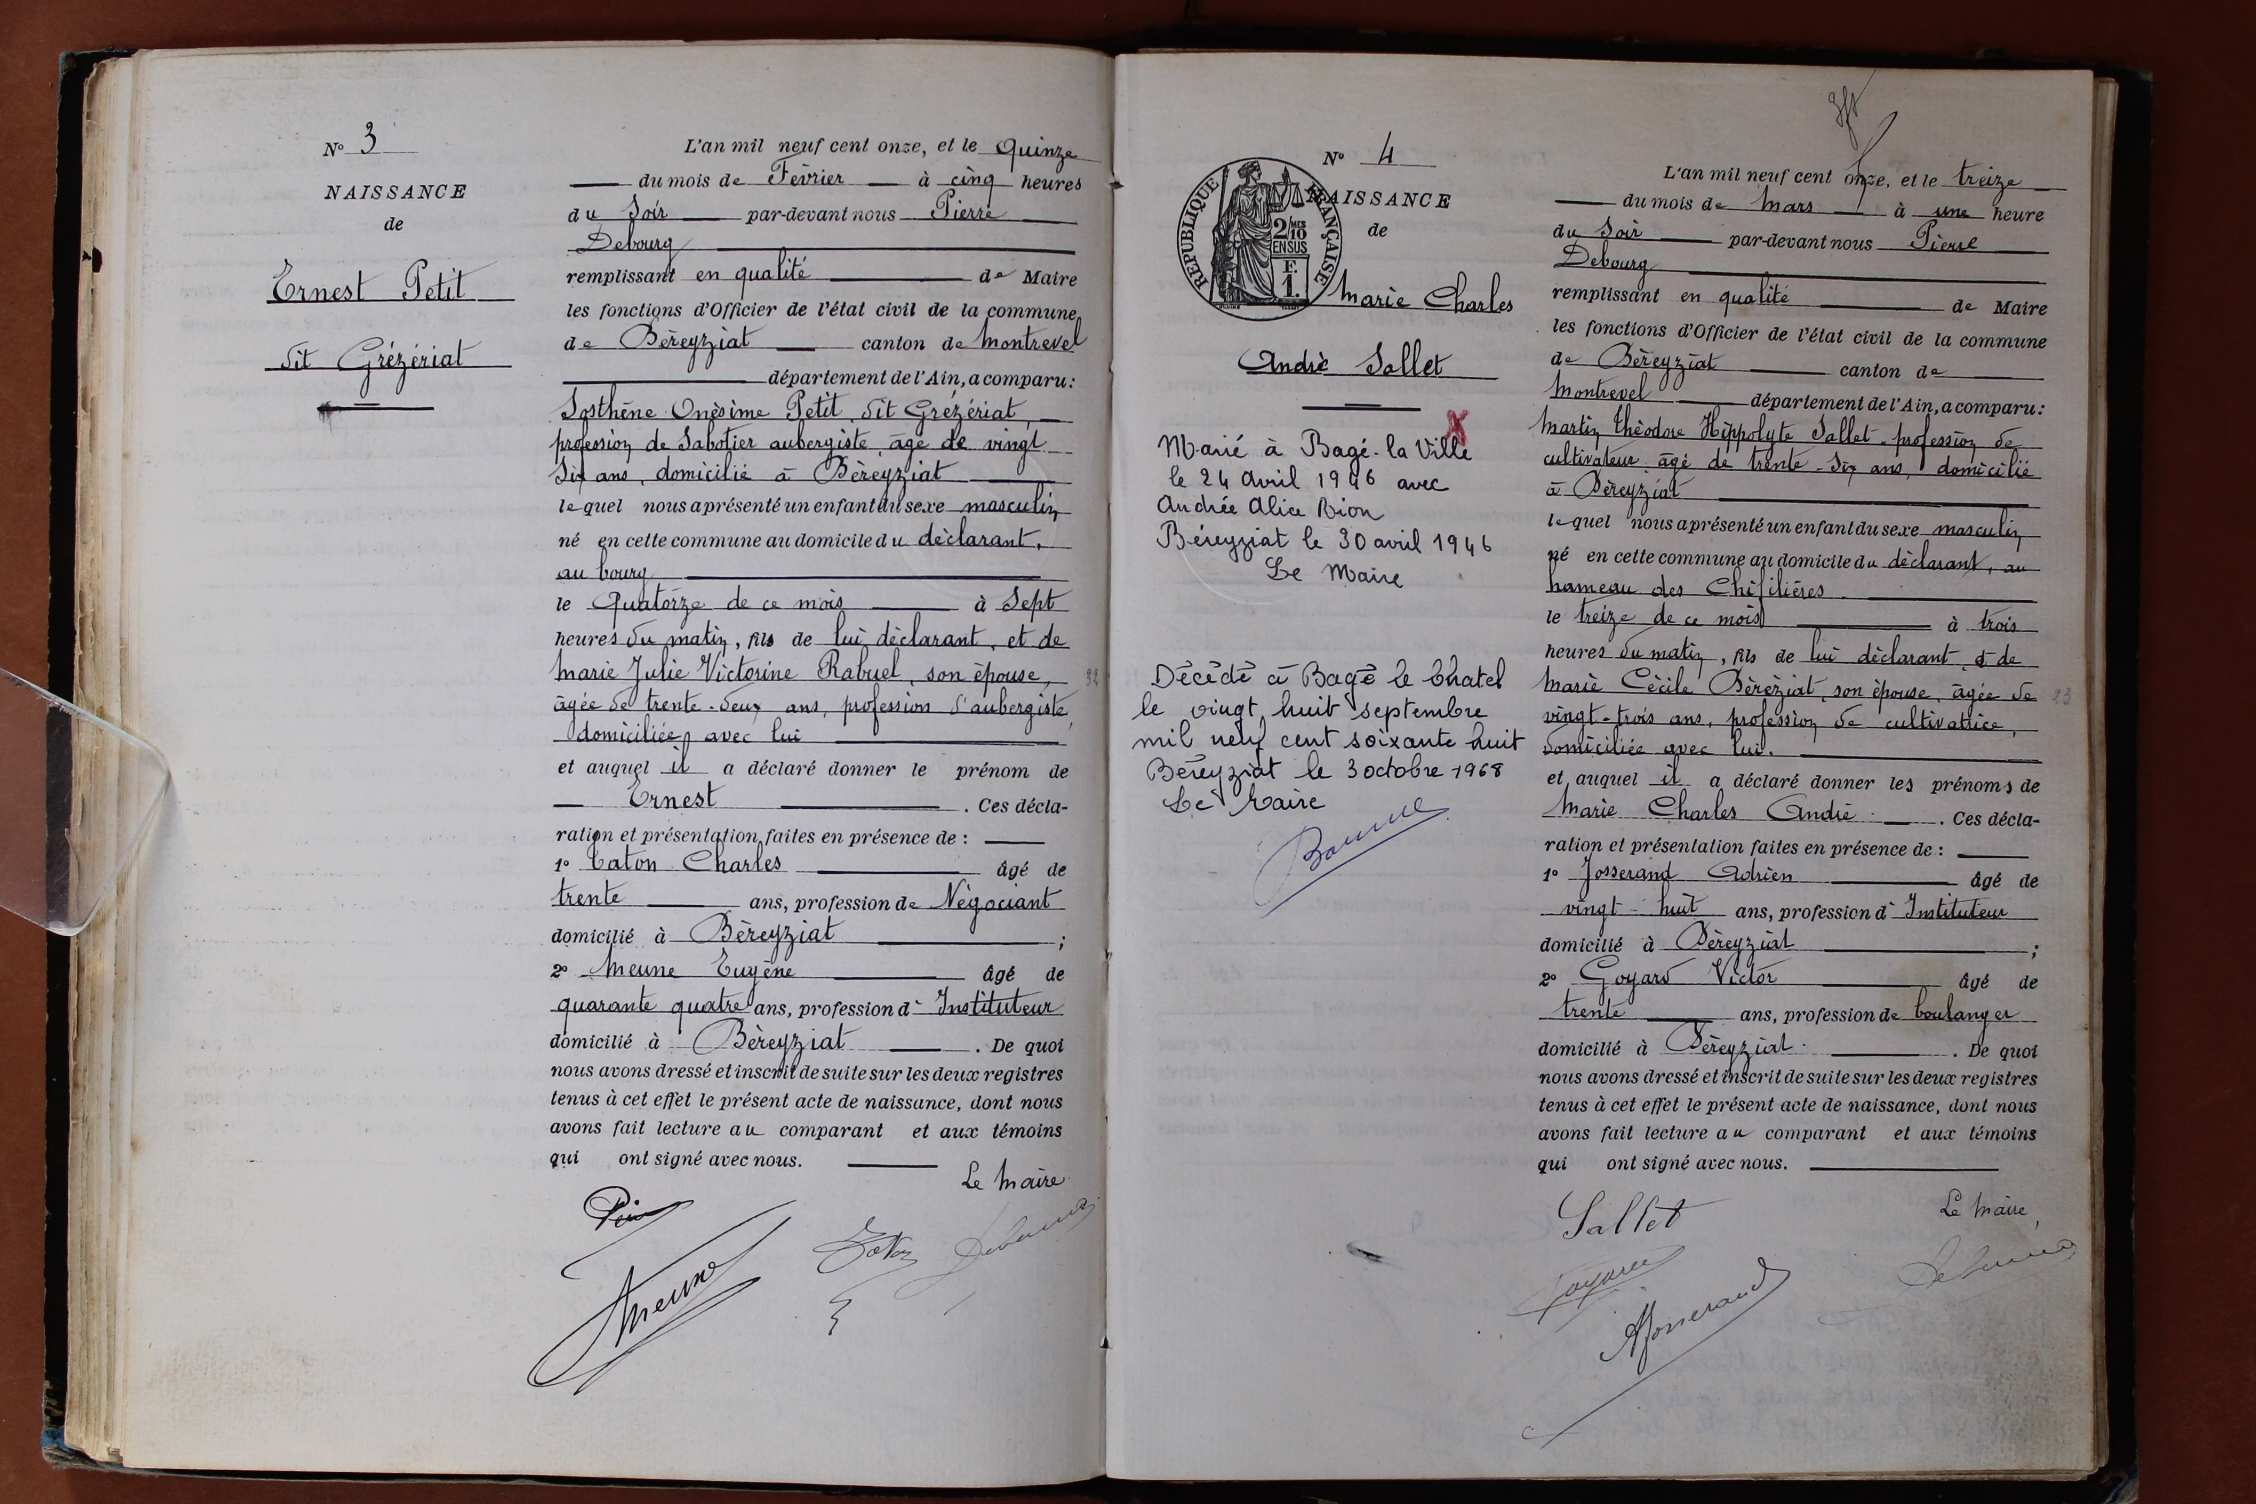 N° 3
NAISSANCE
de
Ernest Petit
dit Grézériat
L'an mil neuf cent onze, et le quinze
du mois de Février à cinq heures
du Soir par-devant nous Pierre
Debourg
remplissant en qualité de Maire
les fonctions d'Officier de l'état civil de la commune
de Béreyziat canton de Montrevel
département de l'Ain, a comparu:
Sosthène Onésime Petit dit Grézériat,
profession de Sabotier aubergiste, âgé de vingt
Six ans, domicilié à Béreyziat
lequel nous a présenté un enfant du sexe masculin
né en cette commune au domicile du déclarant,
au bourg
le Quatorze de ce mois à Sept
heures du matin, fils de lui déclarant, et de
Marie Julie Victorine Rabuel, son épouse, 32
âgée de trente-deux ans, profession d'aubergiste,
domiciliée avec lui
et auquel il a déclaré donner le prénom de
Ernest . Ces décla-
ration et présentation faites en présence de :
1° Taton Charles âgé de
trente ans, profession de Négociant
domicilié à Béreyziat ;
2° Meune Eugène âgé de
quarante quatre ans, profession d' Instituteur
domicilié à Béreyziat . De quoi
nous avons dressé et inscrit de suite sur les deux registres
tenus à cet effet le présent acte de naissance, dont nous
avons fait lecture au comparant et aux témoins
qui ont signé avec nous.
Le Maire
Meune
Debourg
N° 4
NAISSANCE
de
RÉPUBLIQUE FRANÇAISE
2/10 MES
EN SUS
F.
1.
Marie Charles
André Sallet
X
Marié à Bagé-la Ville
le 24 Avril 1946 avec
Andrée Alice Bion
Béreyziat le 30 avril 1946
Le Maire
Décédé à Bagé le Chatel
le vingt huit septembre
mil neuf cent soixante huit
Béreyziat le 3 octobre 1968
Le Maire
L'an mil neuf cent onze, et le treize
du mois de Mars à une heure
du Soir par-devant nous Pierre
Debourg
remplissant en qualité de Maire
les fonctions d'Officier de l'état civil de la commune
de Béreyziat canton de
Montrevel département de l'Ain, a comparu:
Martin Théodore Hippolyte Sallet profession de
cultivateur âgé de trente-six ans, domicilié
à Béreyziat
lequel nous a présenté un enfant du sexe masculin
né en cette commune au domicile du déclarant, au
hameau des Chifilières
le treize de ce mois à trois
heures du matin, fils de lui déclarant, et de
Marie Cécile Béréziat, son épouse, âgée de 23
vingt-trois ans, profession de cultivatrice,
domiciliée avec lui.
et auquel il a déclaré donner les prénoms de
Marie Charles André . Ces décla-
ration et présentation faites en présence de :
1° Josserand Adrien âgé de
vingt-huit ans, profession d' Instituteur
domicilié à Béreyziat ;
2° Goyard Victor âgé de
trente ans, profession de boulanger
domicilié à Béreyziat . De quoi
nous avons dressé et inscrit de suite sur les deux registres
tenus à cet effet le présent acte de naissance, dont nous
avons fait lecture au comparant et aux témoins
qui ont signé avec nous.
Le Maire,
Sallet
Goyard
AJosserand
Debourg